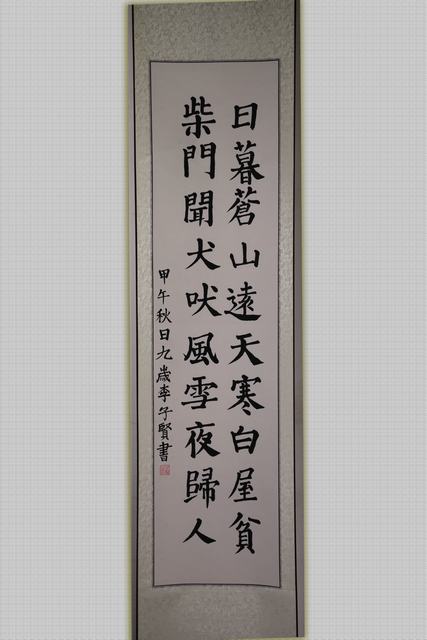 日暮蒼山遠天寒白屋貧
柴門聞犬吠風雪夜歸人
甲午秋日九歲李子賢書